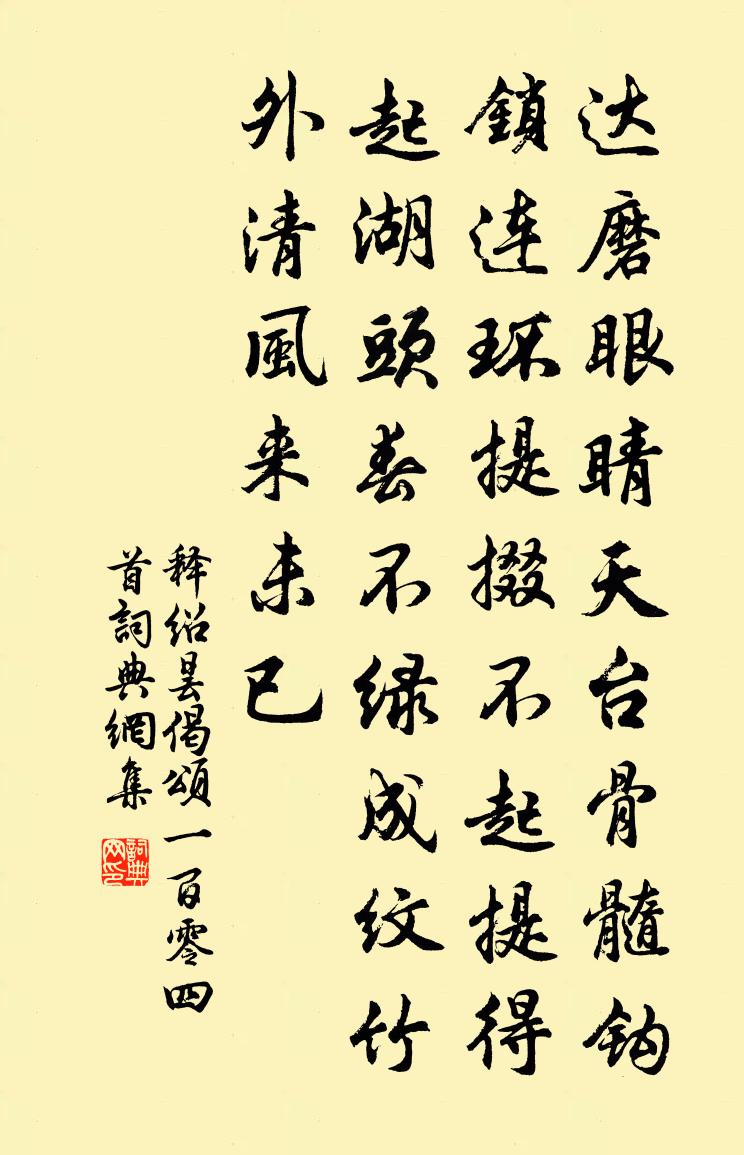 达磨眼睛天台骨髓钩
鎖連环提掇不起提得
起湖頭春不绿成纹竹
外清風来未已
释绍昙偈頌一百零四
首詞典網集
詞典网印